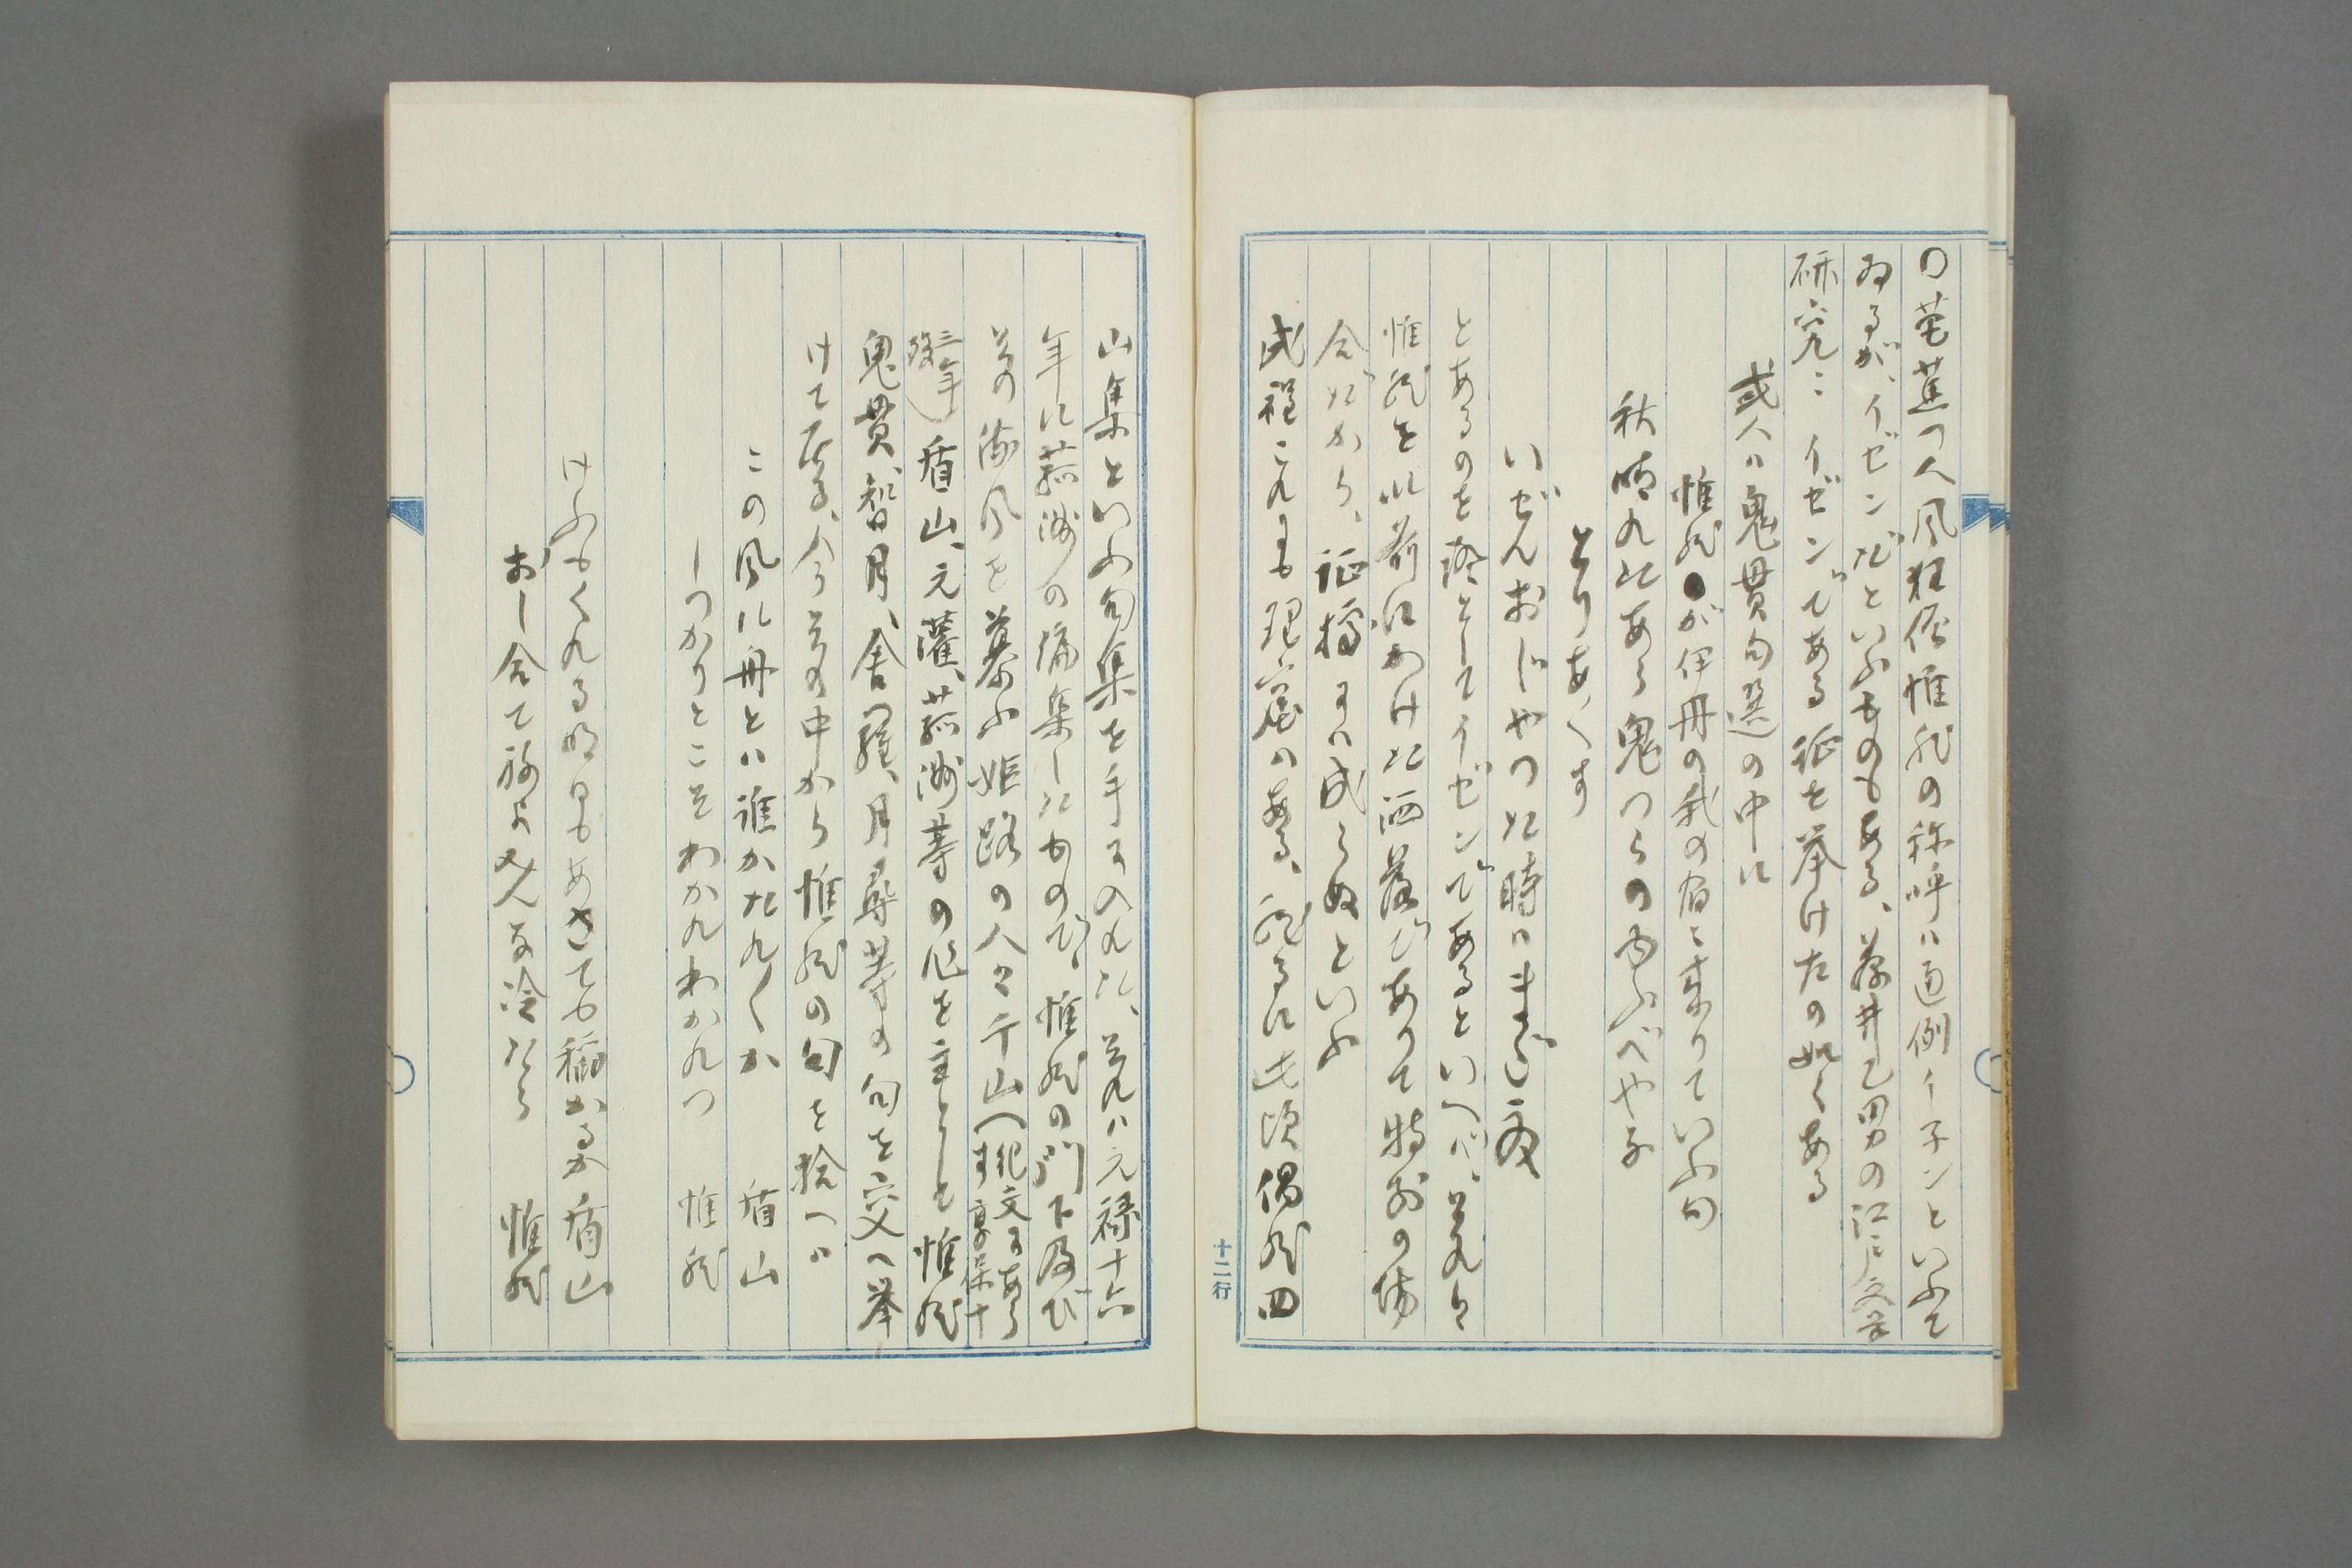 〇芭蕉門人風狂俳惟然の称呼は通例イネンといふて
ゐるが、イゼンだといふものもある、藤井乙男の江戸文学
研究にイゼンである証を挙げたの如くある
或人は鬼貫句選の中に
惟然●が伊丹の我の宿に来りていふ句
秋晴れたあら鬼つらの夕べやな
とりあへず
いぜんおじやつた時はまだ夏
とあるのを證としてイゼンであるといへど、それは
惟然を以前にかけた洒落であつて特別の場
合だから、証拠には成らぬといふ
成程これにも理窟はある、然るに此頃偶然四
十二行
山集といふ句集を手に入れた、それは元禄十六
年に孤洲の編集したもので、惟然の門下及び
その俳風を慕ふ姫路の人々千山(紀文にあらず享保十
三年歿)盾山、元灌、孤洲等の作を主として惟然
鬼貫、智月、舎羅、月尋等の句を交へ挙
げて居る、今その中から惟然の句を拾へば
この風に舟とは誰かたれ〱か 盾山
しつかりとこそわかれわかれつ 惟然
けふもくれる明日もあさても稲かるか 盾山
おし合て秋よみんな冷たら 惟然